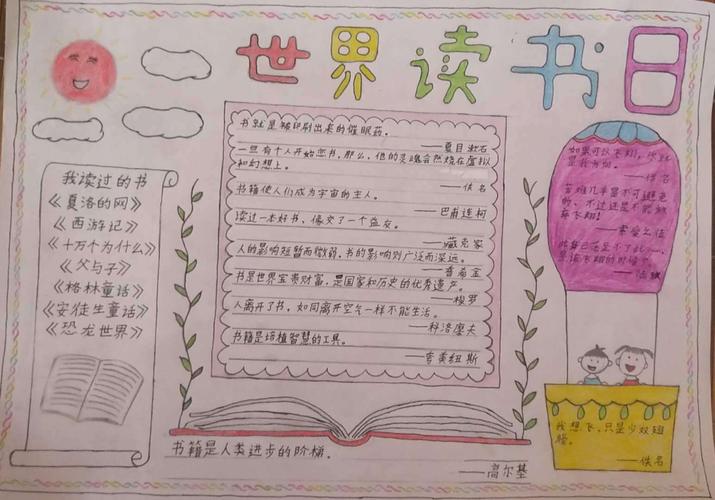 世界读书日
我读过的书
《夏洛的网》
《西游记》
《十万个为什么》
《父与子》
《格林童话》
《安徒生童话》
《恐龙世界》
书就是被印刷出来的催眠药。
——夏目漱石
一旦有个人开始恋书,那么,他的灵魂会燃烧在虚拟
和幻想上。
——佚名
书籍使人们成为宇宙的主人。
——巴甫连柯
读过一本好书、像交了一个益友。
——臧克家
人的影响短暂而微弱,书的影响则广泛而深远。
——普希金
书是世界宝贵财富,是国家和历史的优秀遗产。
——梭罗
人离开了书,如同离开空气一样不能生活。
——科洛廖夫
书籍是培植智慧的工具。
——夸美纽斯
如果可以飞翔,
——佚名
苦难几乎是不可避免
的、不过还是不能放
弃飞翔!
——索爱公信
我想飞,只是少双翅
膀。
——佚名
书籍是人类进步的阶梯。
——高尔基